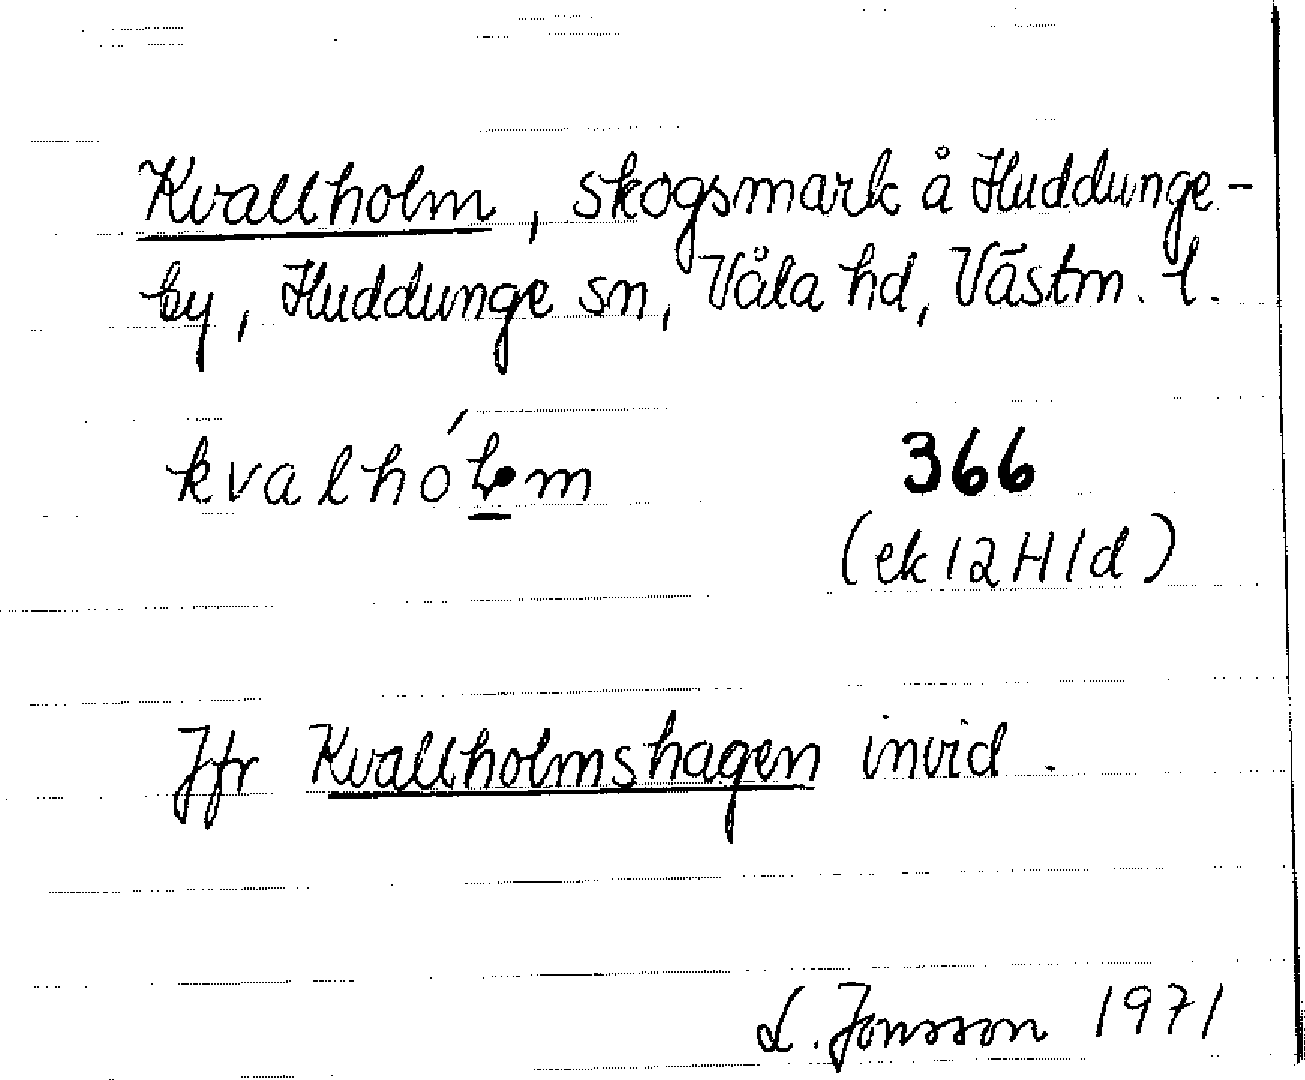 Kvallholm, skogsmark å Huddunge-
by, Huddunge sn, Våla hd, Västm. l.
kvalhó́ḷm
366
(ek 12H1d)
Jfr Kvallholmshagen invid.
L. Jonsson 1971